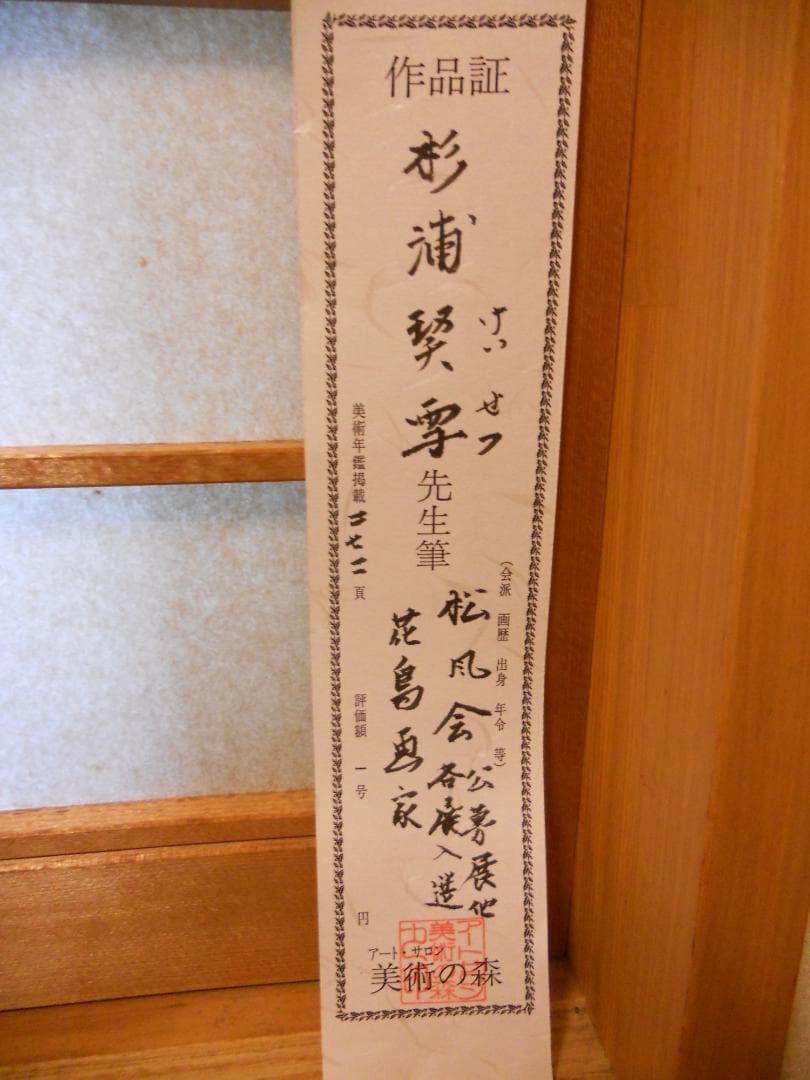 作品証
杉浦契雪先生筆
けいせつ
(会派 画歴 出身 年令 等)
松風会
公募展他
各展入選
花鳥画家
美術年鑑掲載
頁
評価額 一号 円
アート・サロン
美術の森